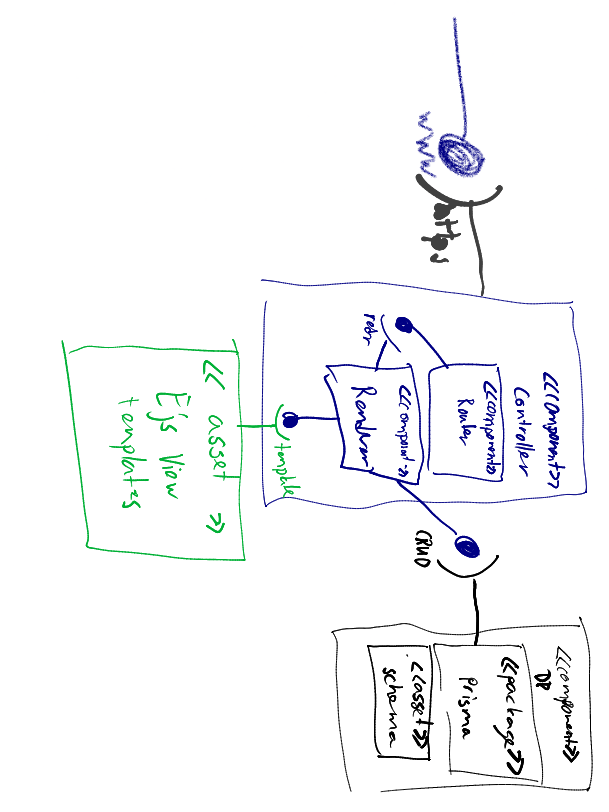 www
https
<<component>>
Controller
<<component>>
Router
<<component>>
Renderer
redr
template
<< asset >>
Ejs View
templates
CRUD
<<component>>
DB
<<package>>
Prisma
<<asset>>
schema